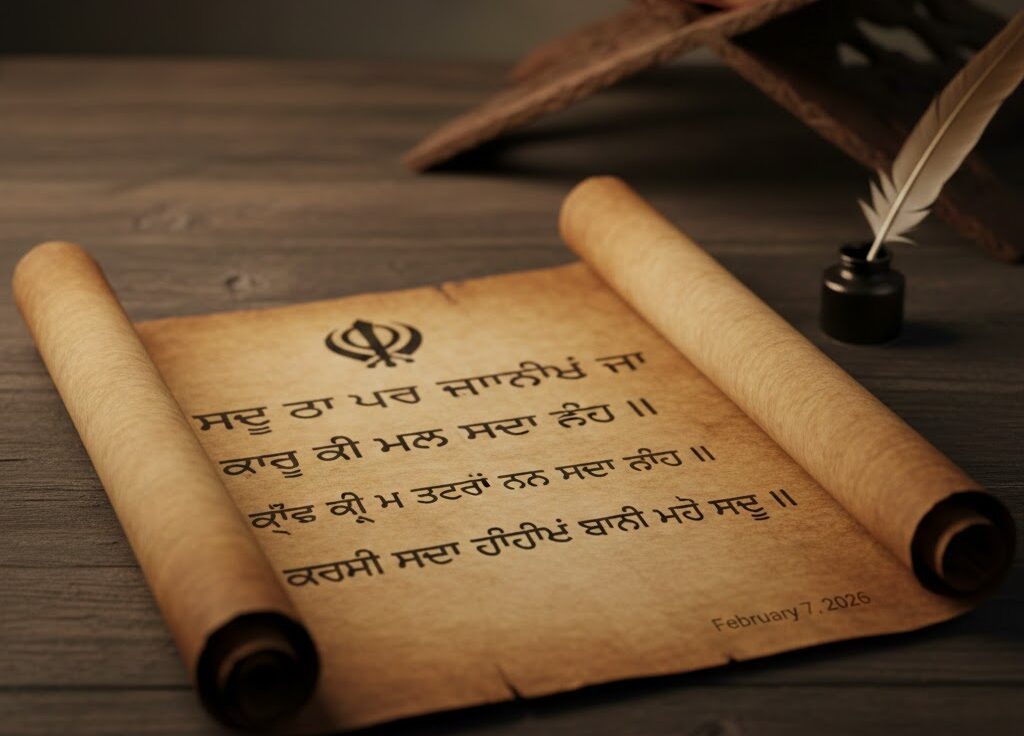 ਸਦੂ ਠਾ ਪਰ ਜਾਨੀਖੰ ਜਾ
ਕਾਰੂ ਕੀ ਮਲ ਸਦਾ ਨੰਹ ॥
ਕੀ ਮ ਤਟਰਾਂ ਨਨ ਸਦਾ ਨੀਂਹ ॥
ਕਰਸੀ ਸਦਾ ਬਾਨੀ ਮਹੋ ਸਦੂ ॥
February 7, 2026